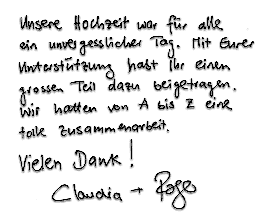 Unsere Hochzeit war für alle
ein unvergesslicher Tag. Mit Eurer
Unterstützung habt ihr einen
grossen Teil dazu beigetragen.
Wir hatten von A bis Z eine
tolle Zusammenarbeit.
Vielen Dank!
Claudia + Roger